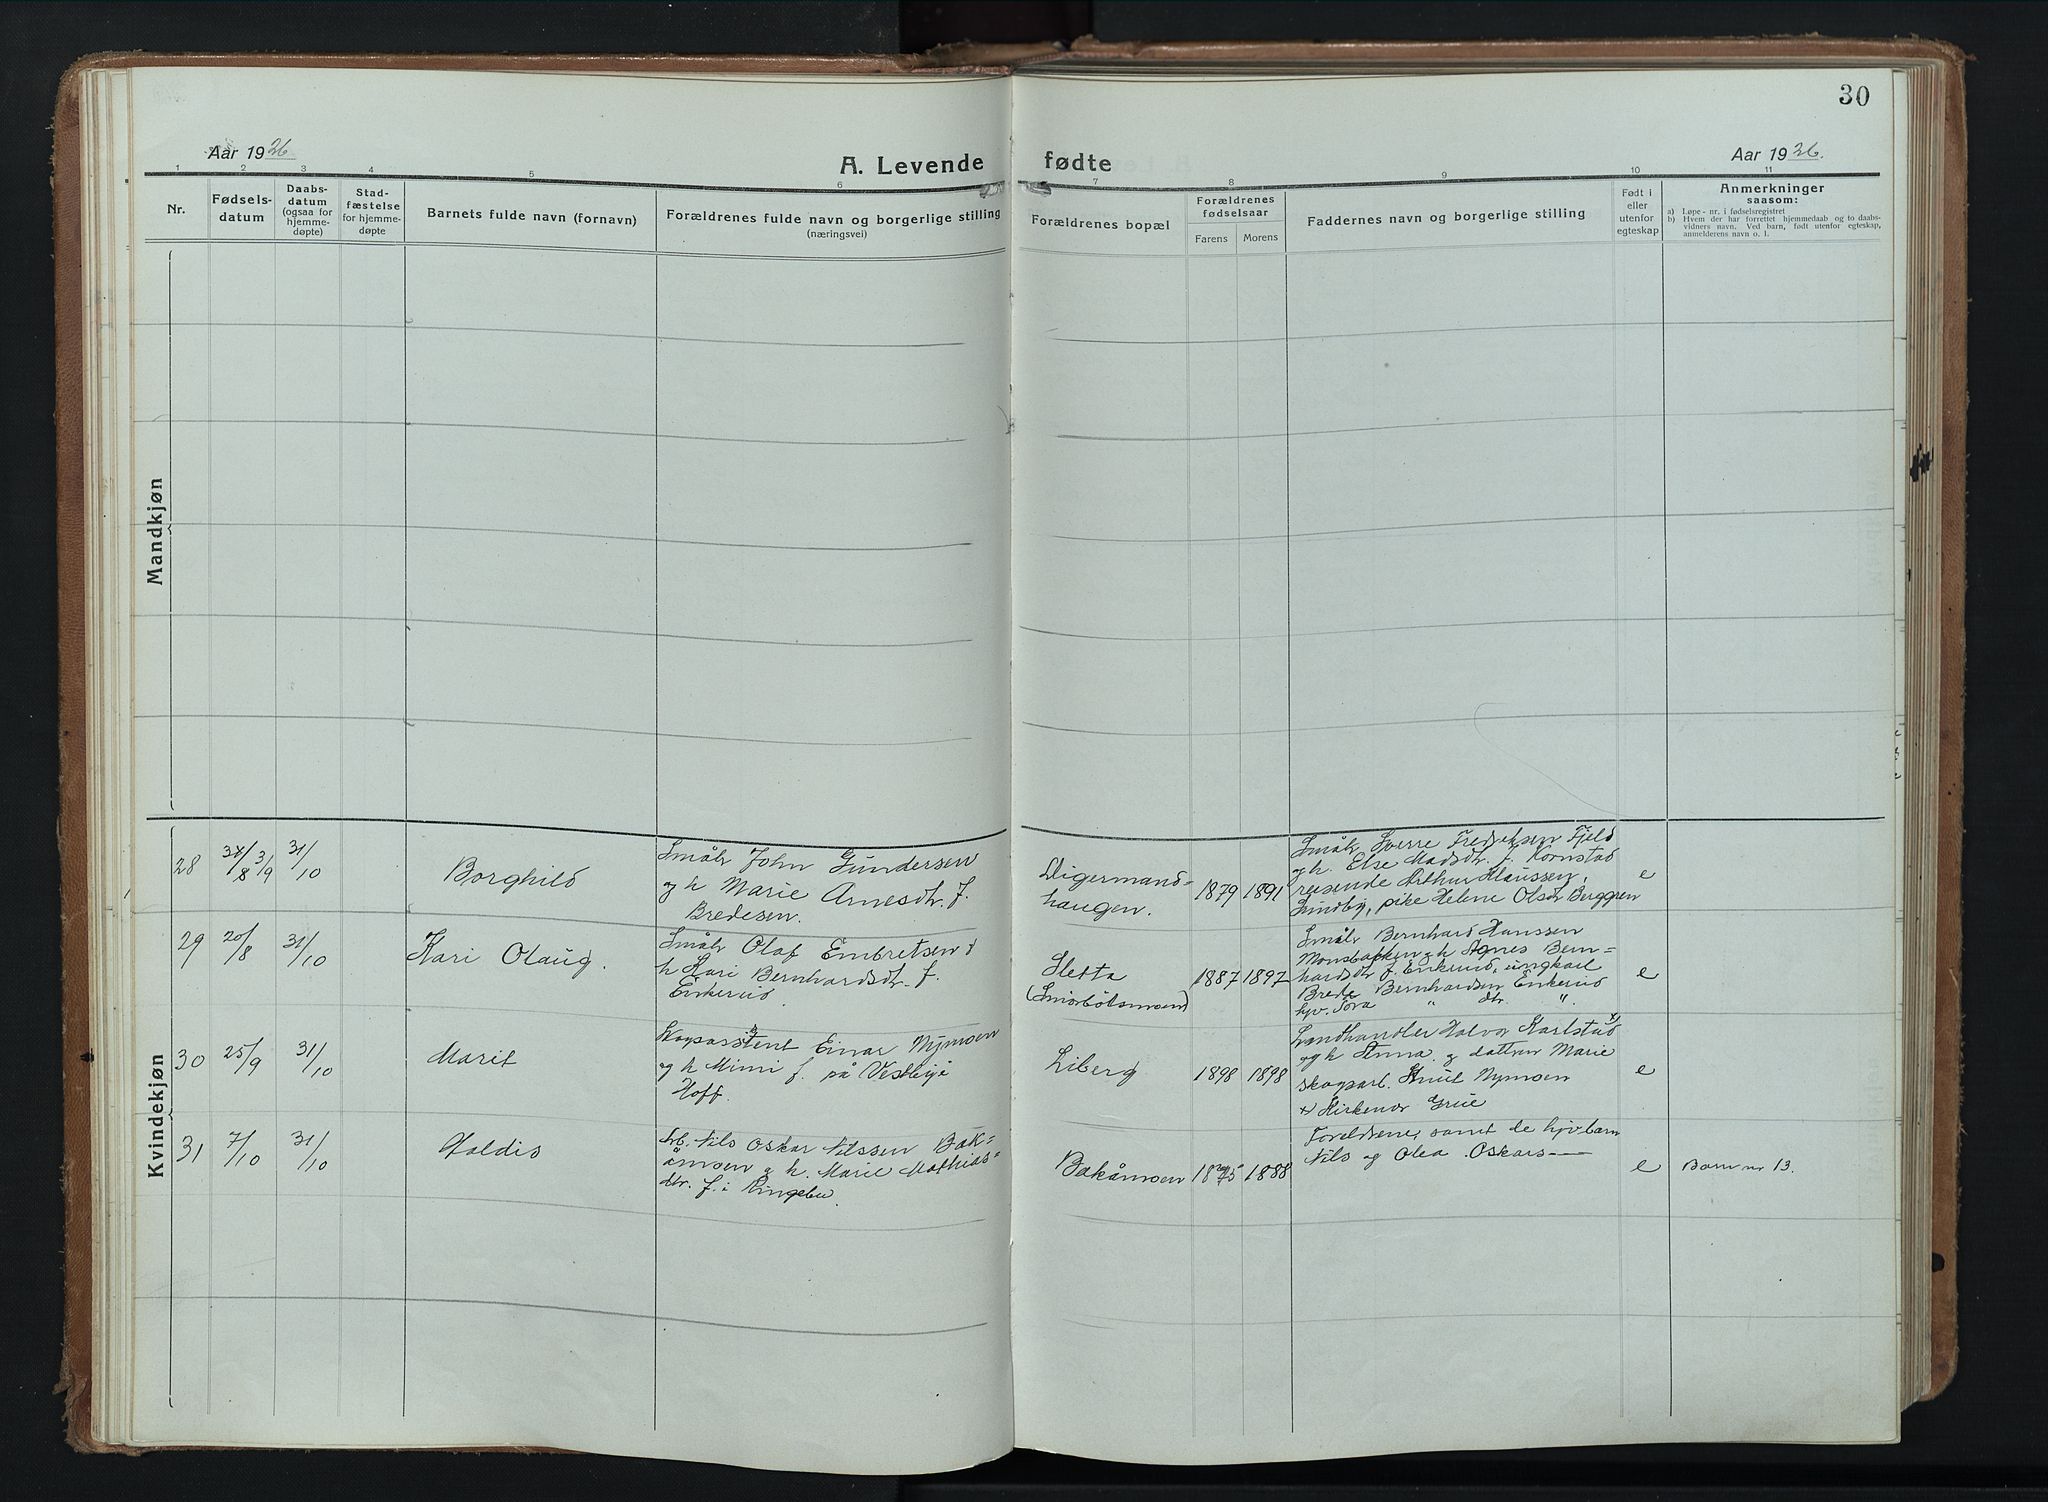 30
Aar 1926
A. Levende fødte
Aar 1926.
1 2 3 4 5 6 7 8 9 10 11
Nr.
Fødsels-
datum
Daabs-
datum
(ogsaa for
hjemme-
døpte)
Stad-
fæstelse
for hjemme-
døpte
Barnets fulde navn (fornavn)
Forældrenes fulde navn og borgerlige stilling
(næringsvei)
Forældrenes bopæl
Forældrenes
fødselsaar
Farens Morens
Faddernes navn og borgerlige stilling
Født i
eller
utenfor
egteskap
Anmerkninger
saasom:
a) Løpe-nr. i fødselsregistret
b) Hvem der har forrettet hjemmedaab og to daabs-
vidners navn. Ved barn, født utenfor egteskap,
anmelderens navn o. l.
Mandkjøn
Kvindekjøn
28
3/9
31/10
Borghild
Småbr John Gundersen
og h Marie Arnesdtr. f.
Bredesen.
Digermands-
haugen.
1879 1891
Småbr Sverre Fredriksen Fjeld
og h. Else Madsdtr. f. Kornstad
reisende Arthur Klaussen,
Lundby, pike Helene Olsdr Berggren
e
29
20/8
31/10
Kari Olaug.
Småbr Olaf Embretsen &
h Kari Bernhardsdtr. f.
Enkerud.
Sletta
(Smørbølsmoen)
1887 1897
Småbr Bernhard Hanssen
Monsbakken og h Agnes Bern-
hardsdtr f. Enkerud, ungkarl
Brede Bernhardsen Enkerud
hjv. Tora " dtr. ".
e
30
25/9
31/10
Marit
Skogassistent Einar Nymoen
og h Mimi f. på Vestbye
Hoff.
Liberg
1898 1898
Landhandler Halvor Karlstad x)
og h Anna. og datteren Marie
skogarb. Knut Nymoen
x) Kirkenær Grue
e
31
7/10
31/10
Haldis
Arb. Nils Oskar Nilssen Bak-
åmoen og h. Marie Mathias-
dtr. f. i Ringebu.
Bakåmoen
1875 1888
Foreldrene, samt de hjv. barn
Nils og Olea Oskars—
e
Barn nr 13.